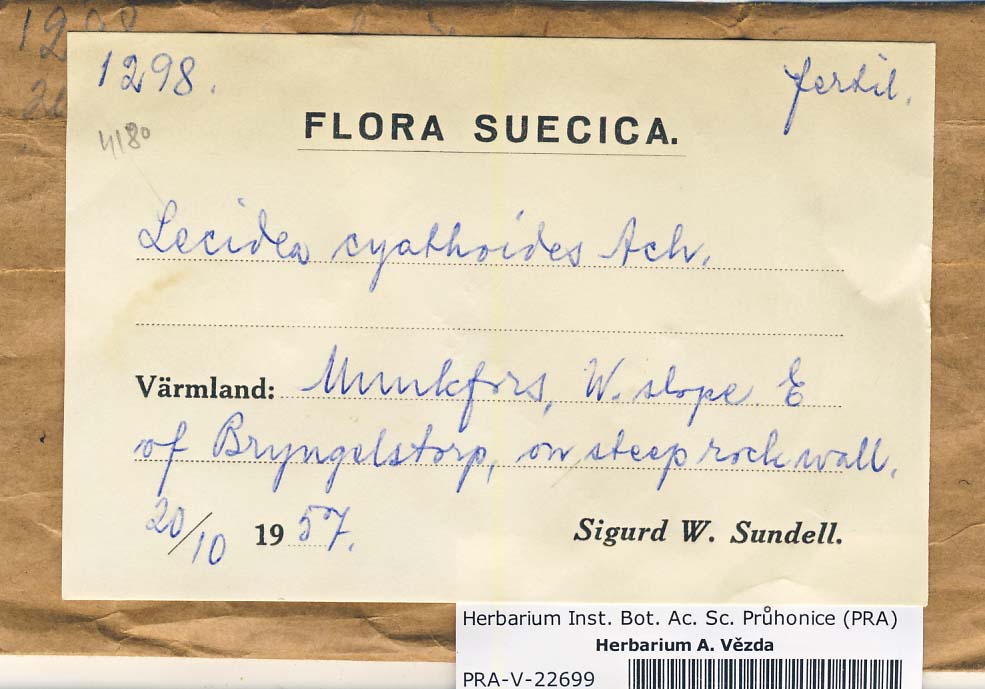 1298.
fertil.
4180
FLORA SUECICA.
Lecidea cyathoides Ach.
Värmland: Munkfors, W. slope E
of Bryngelstorp, on steep rock wall.
20/10 1957.
Sigurd W. Sundell.
Herbarium Inst. Bot. Ac. Sc. Průhonice (PRA)
Herbarium A. Vězda
PRA-V-22699